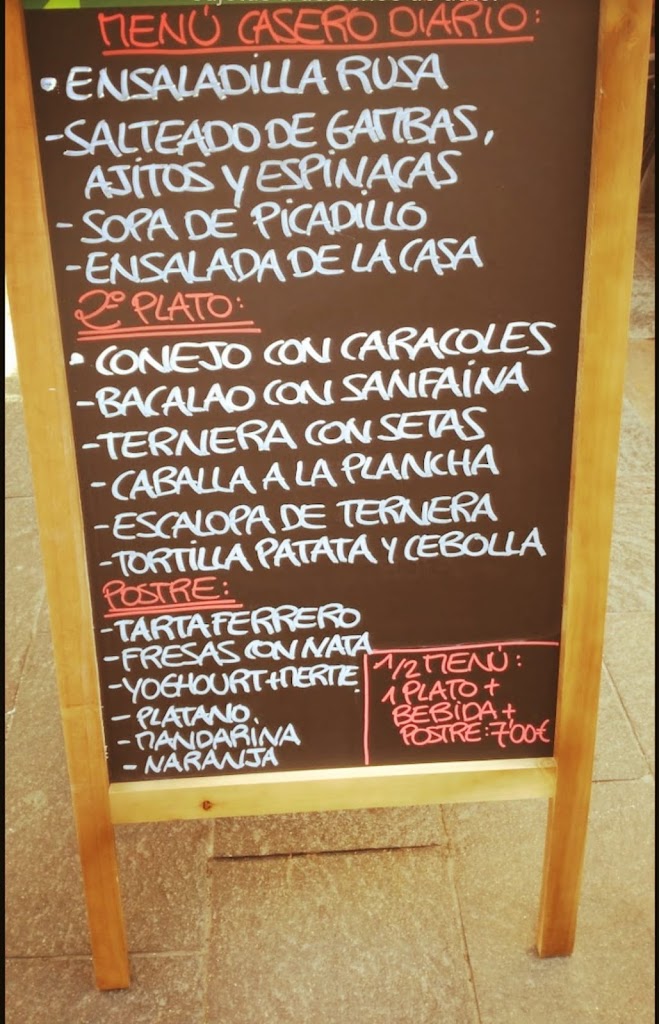 MENÚ CASERO DIARIO:
• ENSALADILLA RUSA
- SALTEADO DE GAMBAS,
AJITOS Y ESPINACAS
- SOPA DE PICADILLO
- ENSALADA DE LA CASA
2º PLATO:
• CONEJO CON CARACOLES
- BACALAO CON SANFAÍNA
- TERNERA CON SETAS
- CABALLA A LA PLANCHA
- ESCALOPA DE TERNERA
- TORTILLA PATATA Y CEBOLLA
POSTRE:
- TARTA FERRERO
- FRESAS CON NATA
- YOGHOURT + MERME.
- PLATANO.
- MANDARINA
- NARANJA
1/2 MENÚ:
1 PLATO +
BEBIDA +
POSTRE: 7'00€